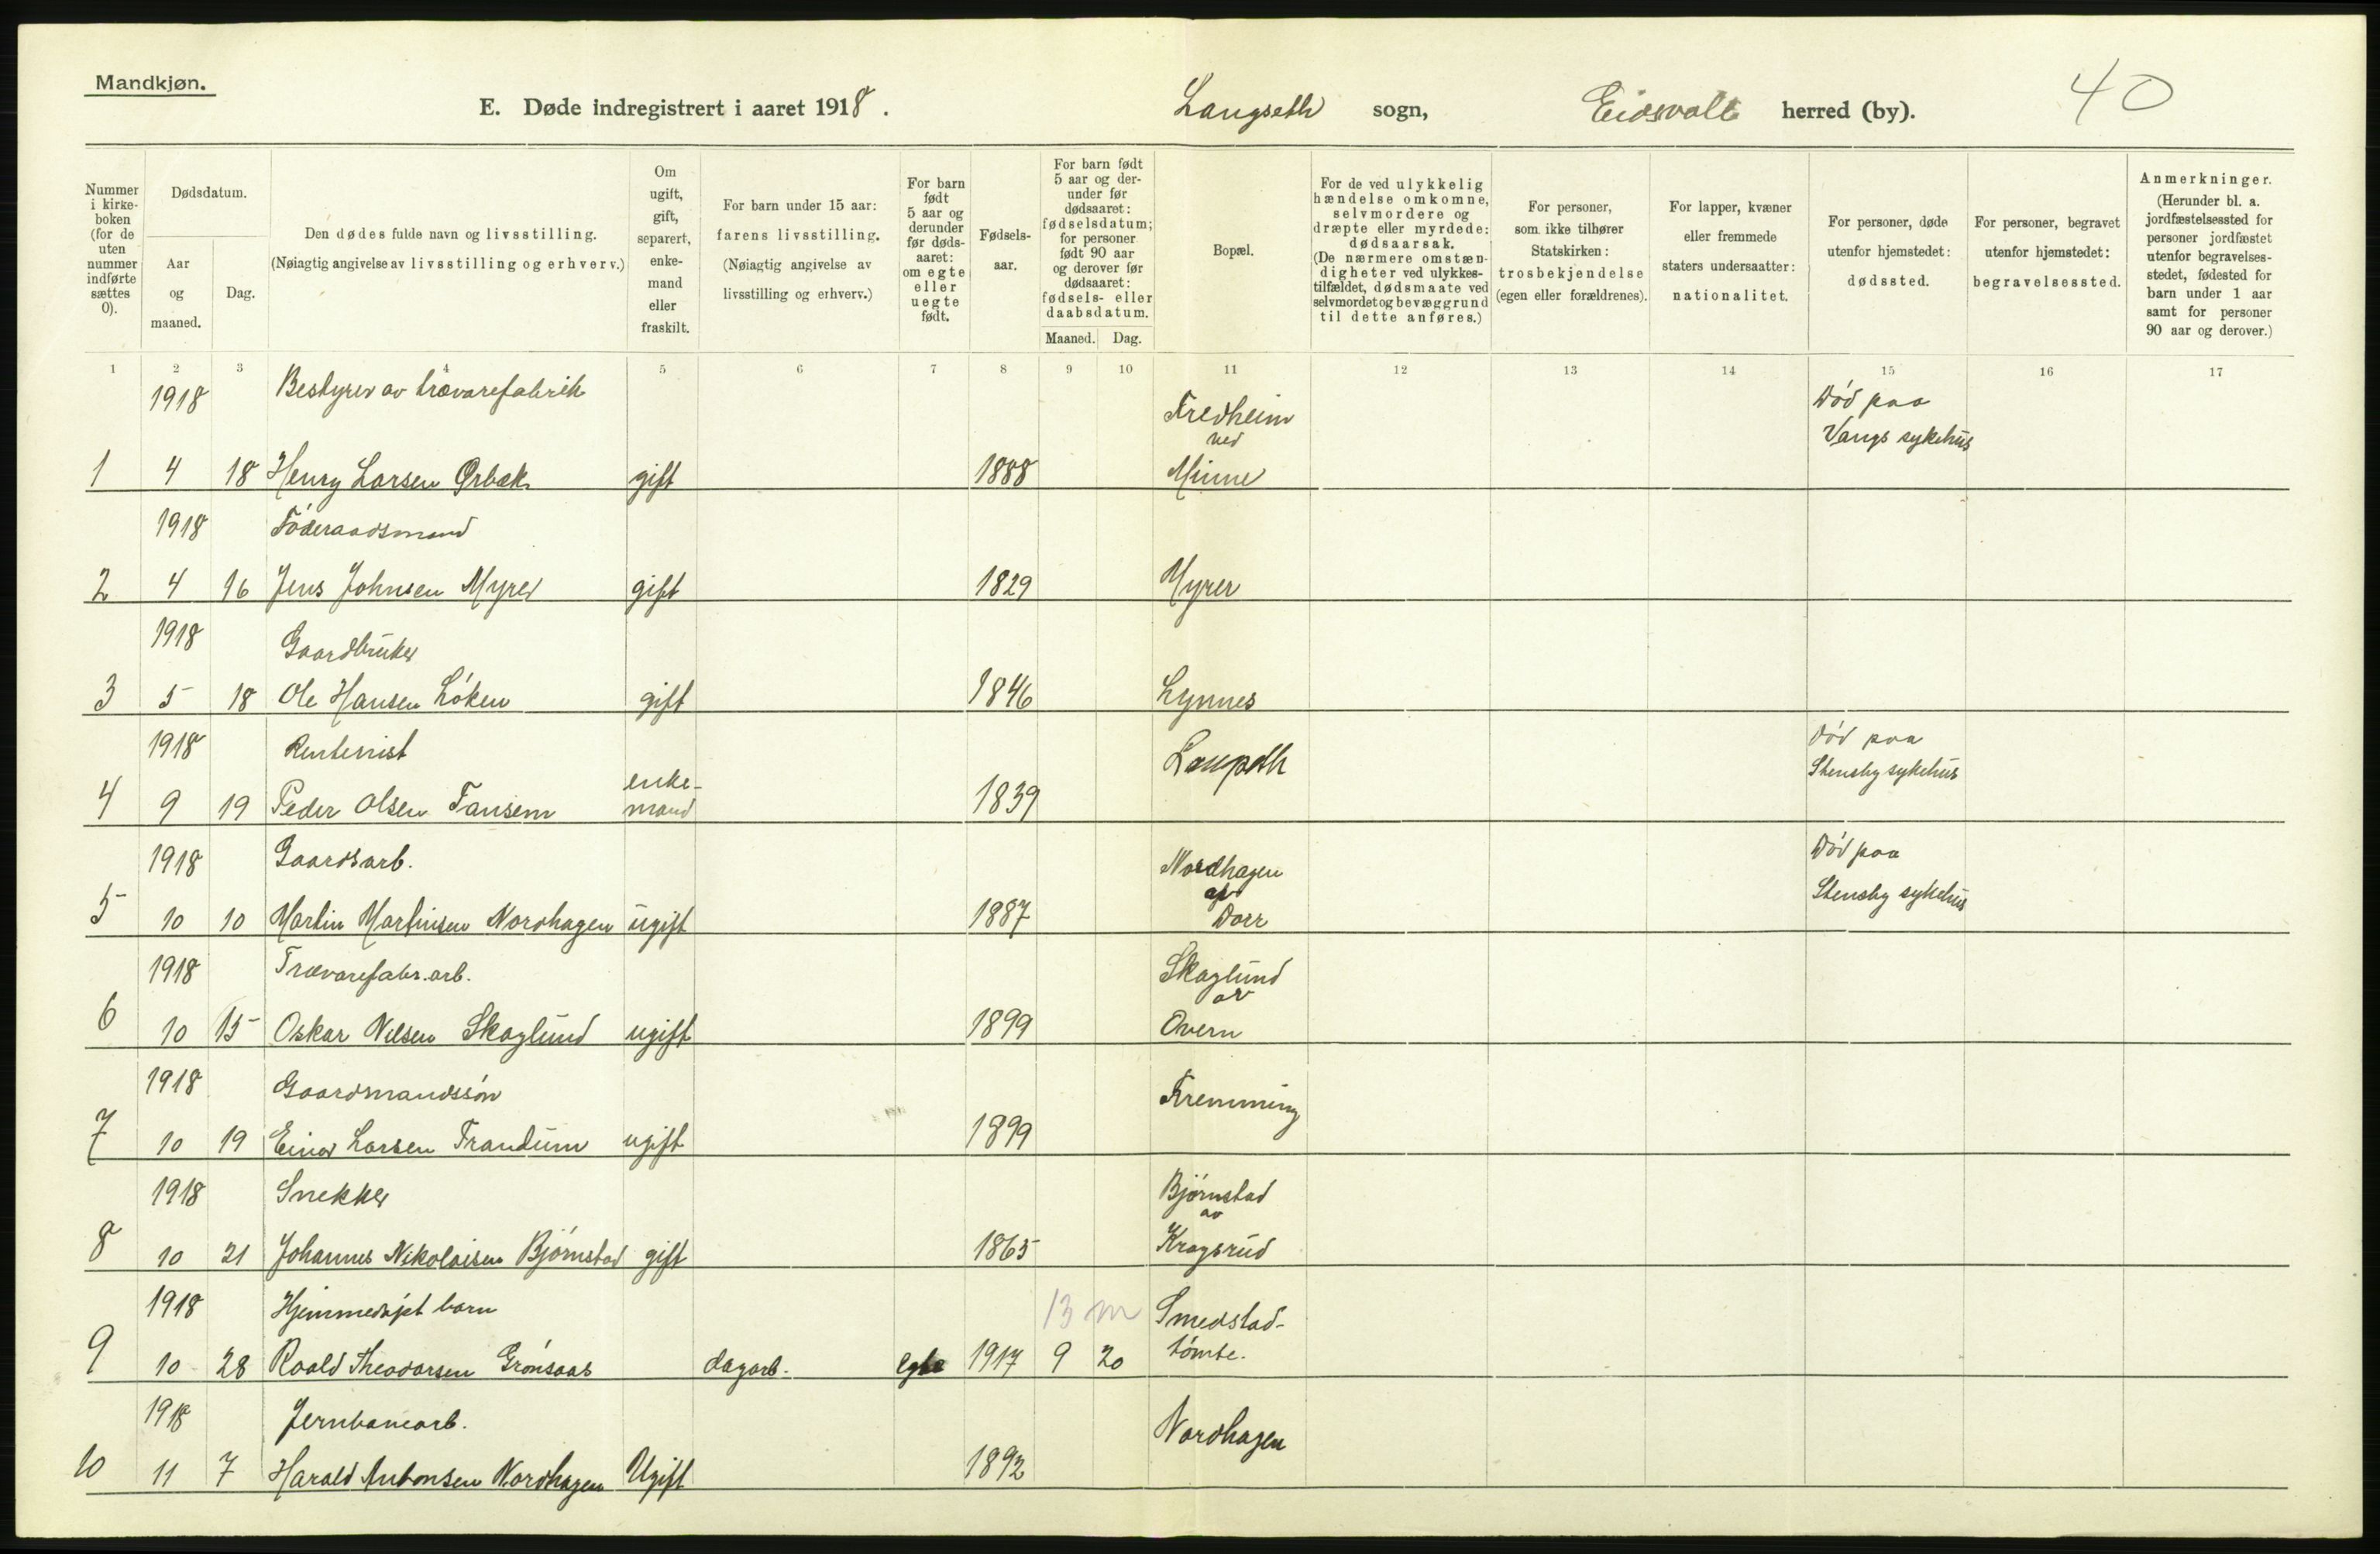 Mandkjøn.
E. Døde indregistrert i aaret 1918. Langseth sogn, Eidsvoll herred (by). 40
Nummer i kirkeboken (for de uten nummer indførte sættes 0).
Dødsdatum.
Aar og maaned.
Dag.
Den dødes fulde navn og livsstilling.
(Nøiagtig angivelse av livsstilling og erhverv.)
Om ugift, gift, separert, enkemand eller fraskilt.
For barn under 15 aar: farens livsstilling. (Nøiagtig angivelse av livsstilling og erhverv.)
For barn født 5 aar og derunder før dødsaaret: om egte eller uegte født.
Fødselsaar.
For barn født 5 aar og derunder før dødsaaret: fødselsdatum; for personer født 90 aar og derover før dødsaaret: fødsels- eller daabsdatum.
Maaned. Dag.
Bopæl.
For de ved ulykkelig hændelse omkomne, selvmordere og dræpte eller myrdede: dødsaarsak. (De nærmere omstændigheter ved ulykkestilfældet, dødsmaate ved selvmordet og bevæggrund til dette anføres.)
For personer, som ikke tilhører Statskirken: trosbekjendelse (egen eller forældrenes).
For lapper, kvæner eller fremmede staters undersaatter: nationalitet.
For personer, døde utenfor hjemstedet: dødssted.
For personer, begravet utenfor hjemstedet: begravelsessted.
Anmerkninger. (Herunder bl. a. jordfæstelsessted for personer jordfæstet utenfor begravelsesstedet, fødested for barn under 1 aar samt for personer 90 aar og derover.)
1 2 3 4 5 6 7 8 9 10 11 12 13 14 15 16 17
1918 Bestyrer av trævarefabrik Fredheim Død paa
ved Vangs sykehus
1 4 18 Henry Larsen Ørbæk gift 1888 Minne
1918 Föderaadsmand
2 4 16 Jens Johnsen Myrer gift 1829 Myrer
1918 Gaardbruker
3 5 18 Ole Hansen Löken gift 1846 Lynnes
1918 Rentenist Död paa
enke- Stensby sykehus
4 9 19 Peder Olsen Tansem mand 1839
1918 Gaardsarb. Nordhagen Död paa
av Stensby sykehus
5 10 10 Martin Martinsen Nordhagen ugift 1887 Dorr
1918 Trævarefabr.arb. Skoglund
av
6 10 15 Oskar Nilsen Skoglund ugift 1899 Overn
1918 Gaardmandssön Fremming
7 10 19 Einar Larsen Trandum ugift 1899
1918 Snekker Björnstad
av
8 10 21 Johannes Nikolaisen Björnstad gift 1865 Kragsrud
1918 Hjemmedöpt barn 13 m Smedstad-
9 10 28 Roald Theodorsen Grönsaas dagarb. egte 1917 9 20 tömte.
1918 Jernbanearb. Nordhagen
10 11 7 Harald Antonsen Nordhagen Ugift 1892